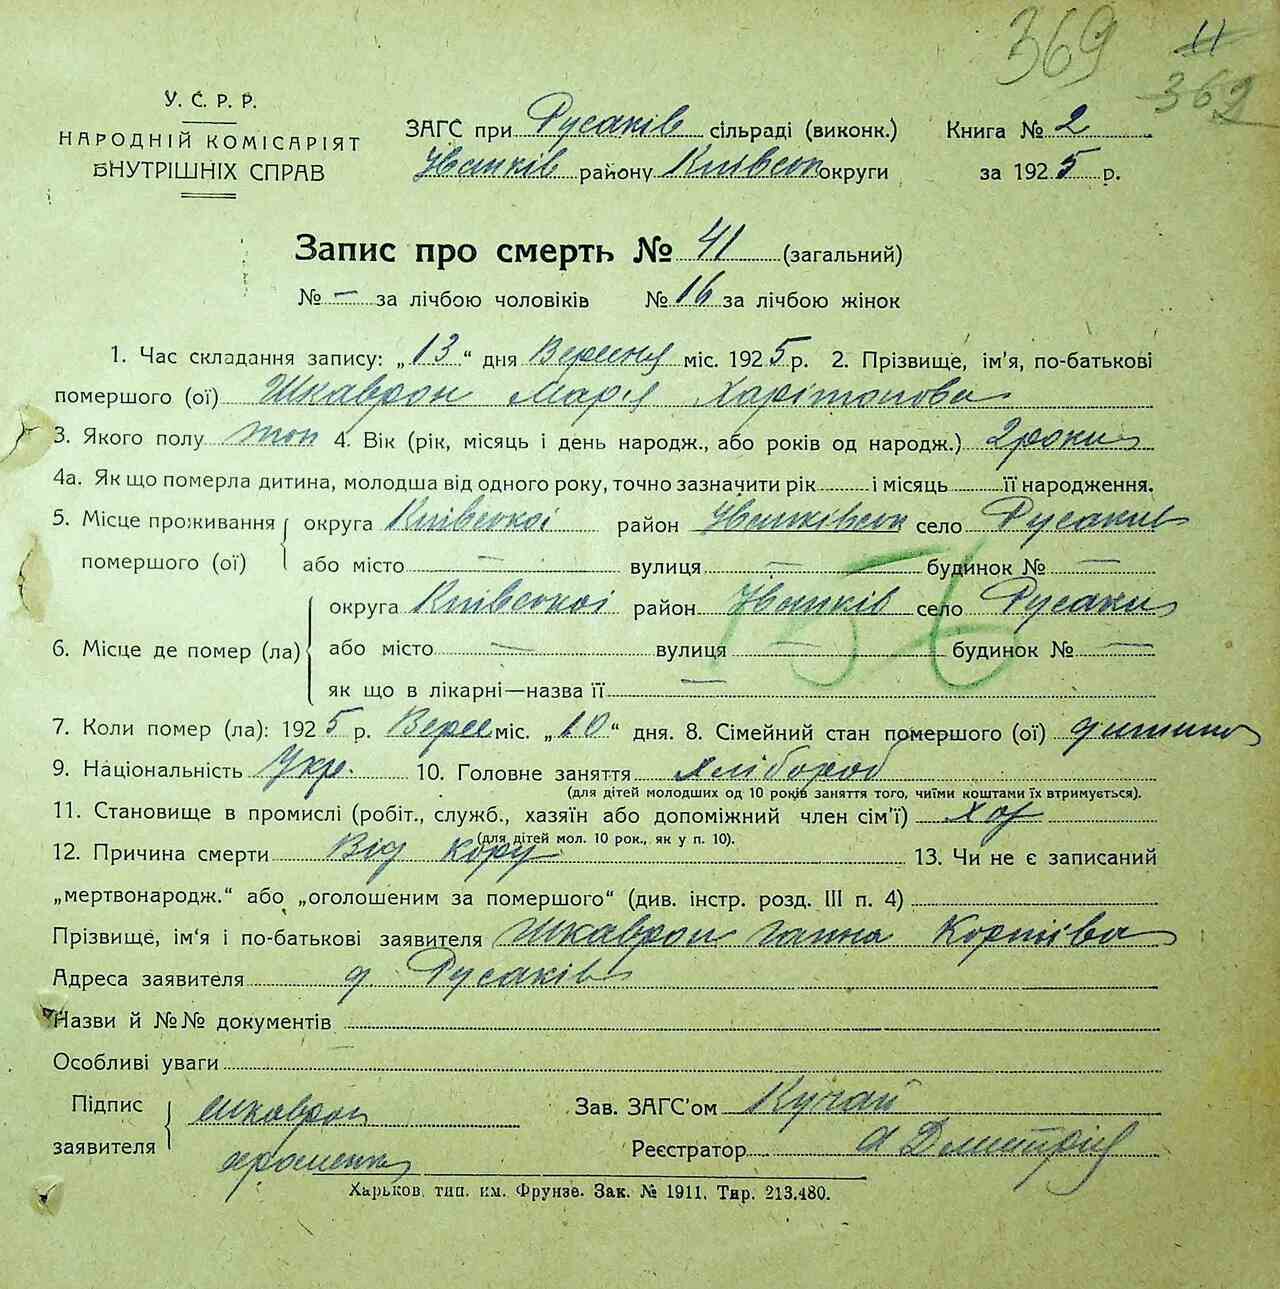 369
11
369
У. С. Р. Р.
НАРОДНІЙ КОМІСАРІЯТ
ВНУТРІШНІХ СПРАВ
ЗАГС при Русаків сільраді (виконк.)
Іванків району Київськ округи
Книга № 2
за 1925 р.
Запис про смерть № 41 (загальний)
№ — за лічбою чоловіків № 16 за лічбою жінок
1. Час складання запису: „13“ дня Вересня міс. 1925 р. 2. Прізвище, ім'я, по-батькові
помершого (ої) Шкаврон Марія Харітонова
3. Якого полу жон 4. Вік (рік, місяць і день народж., або років од народж.) 2 роки
4а. Як що померла дитина, молодша від одного року, точно зазначити рік і місяць її народження.
5. Місце проживання помершого (ої) округа Київської район Іванківськ село Русаки
або місто — вулиця — будинок № —
156
6. Місце де помер (ла) округа Київської район Іванків село Русаки
або місто — вулиця — будинок № —
як що в лікарні—назва її —
7. Коли помер (ла): 1925 р. Вересн міс. „10“ дня. 8. Сімейний стан помершого (ої) дитина
9. Національність Укр. 10. Головне заняття Хлібороб
(для дітей молодших од 10 років заняття того, чиїми коштами їх втримується).
11. Становище в промислі (робіт., служб., хазяїн або допоміжний член сім'ї) хаз
(для дітей мол. 10 рок., як у п. 10).
12. Причина смерти Від кору 13. Чи не є записаний
„мертвонародж.“ або „оголошеним за помершого“ (див. інстр. розд. III п. 4)
Прізвище, ім'я і по-батькові заявителя Шкаврон Ганна Корніева
Адреса заявителя д. Русаків
Назви й №№ документів
Особливі уваги
Підпис заявителя шкаврон
Зав. ЗАГС'ом Кучай
Реєстратор
Харьков, тип. им. Фрунзе. Зак. № 1911. Тир. 213.480.